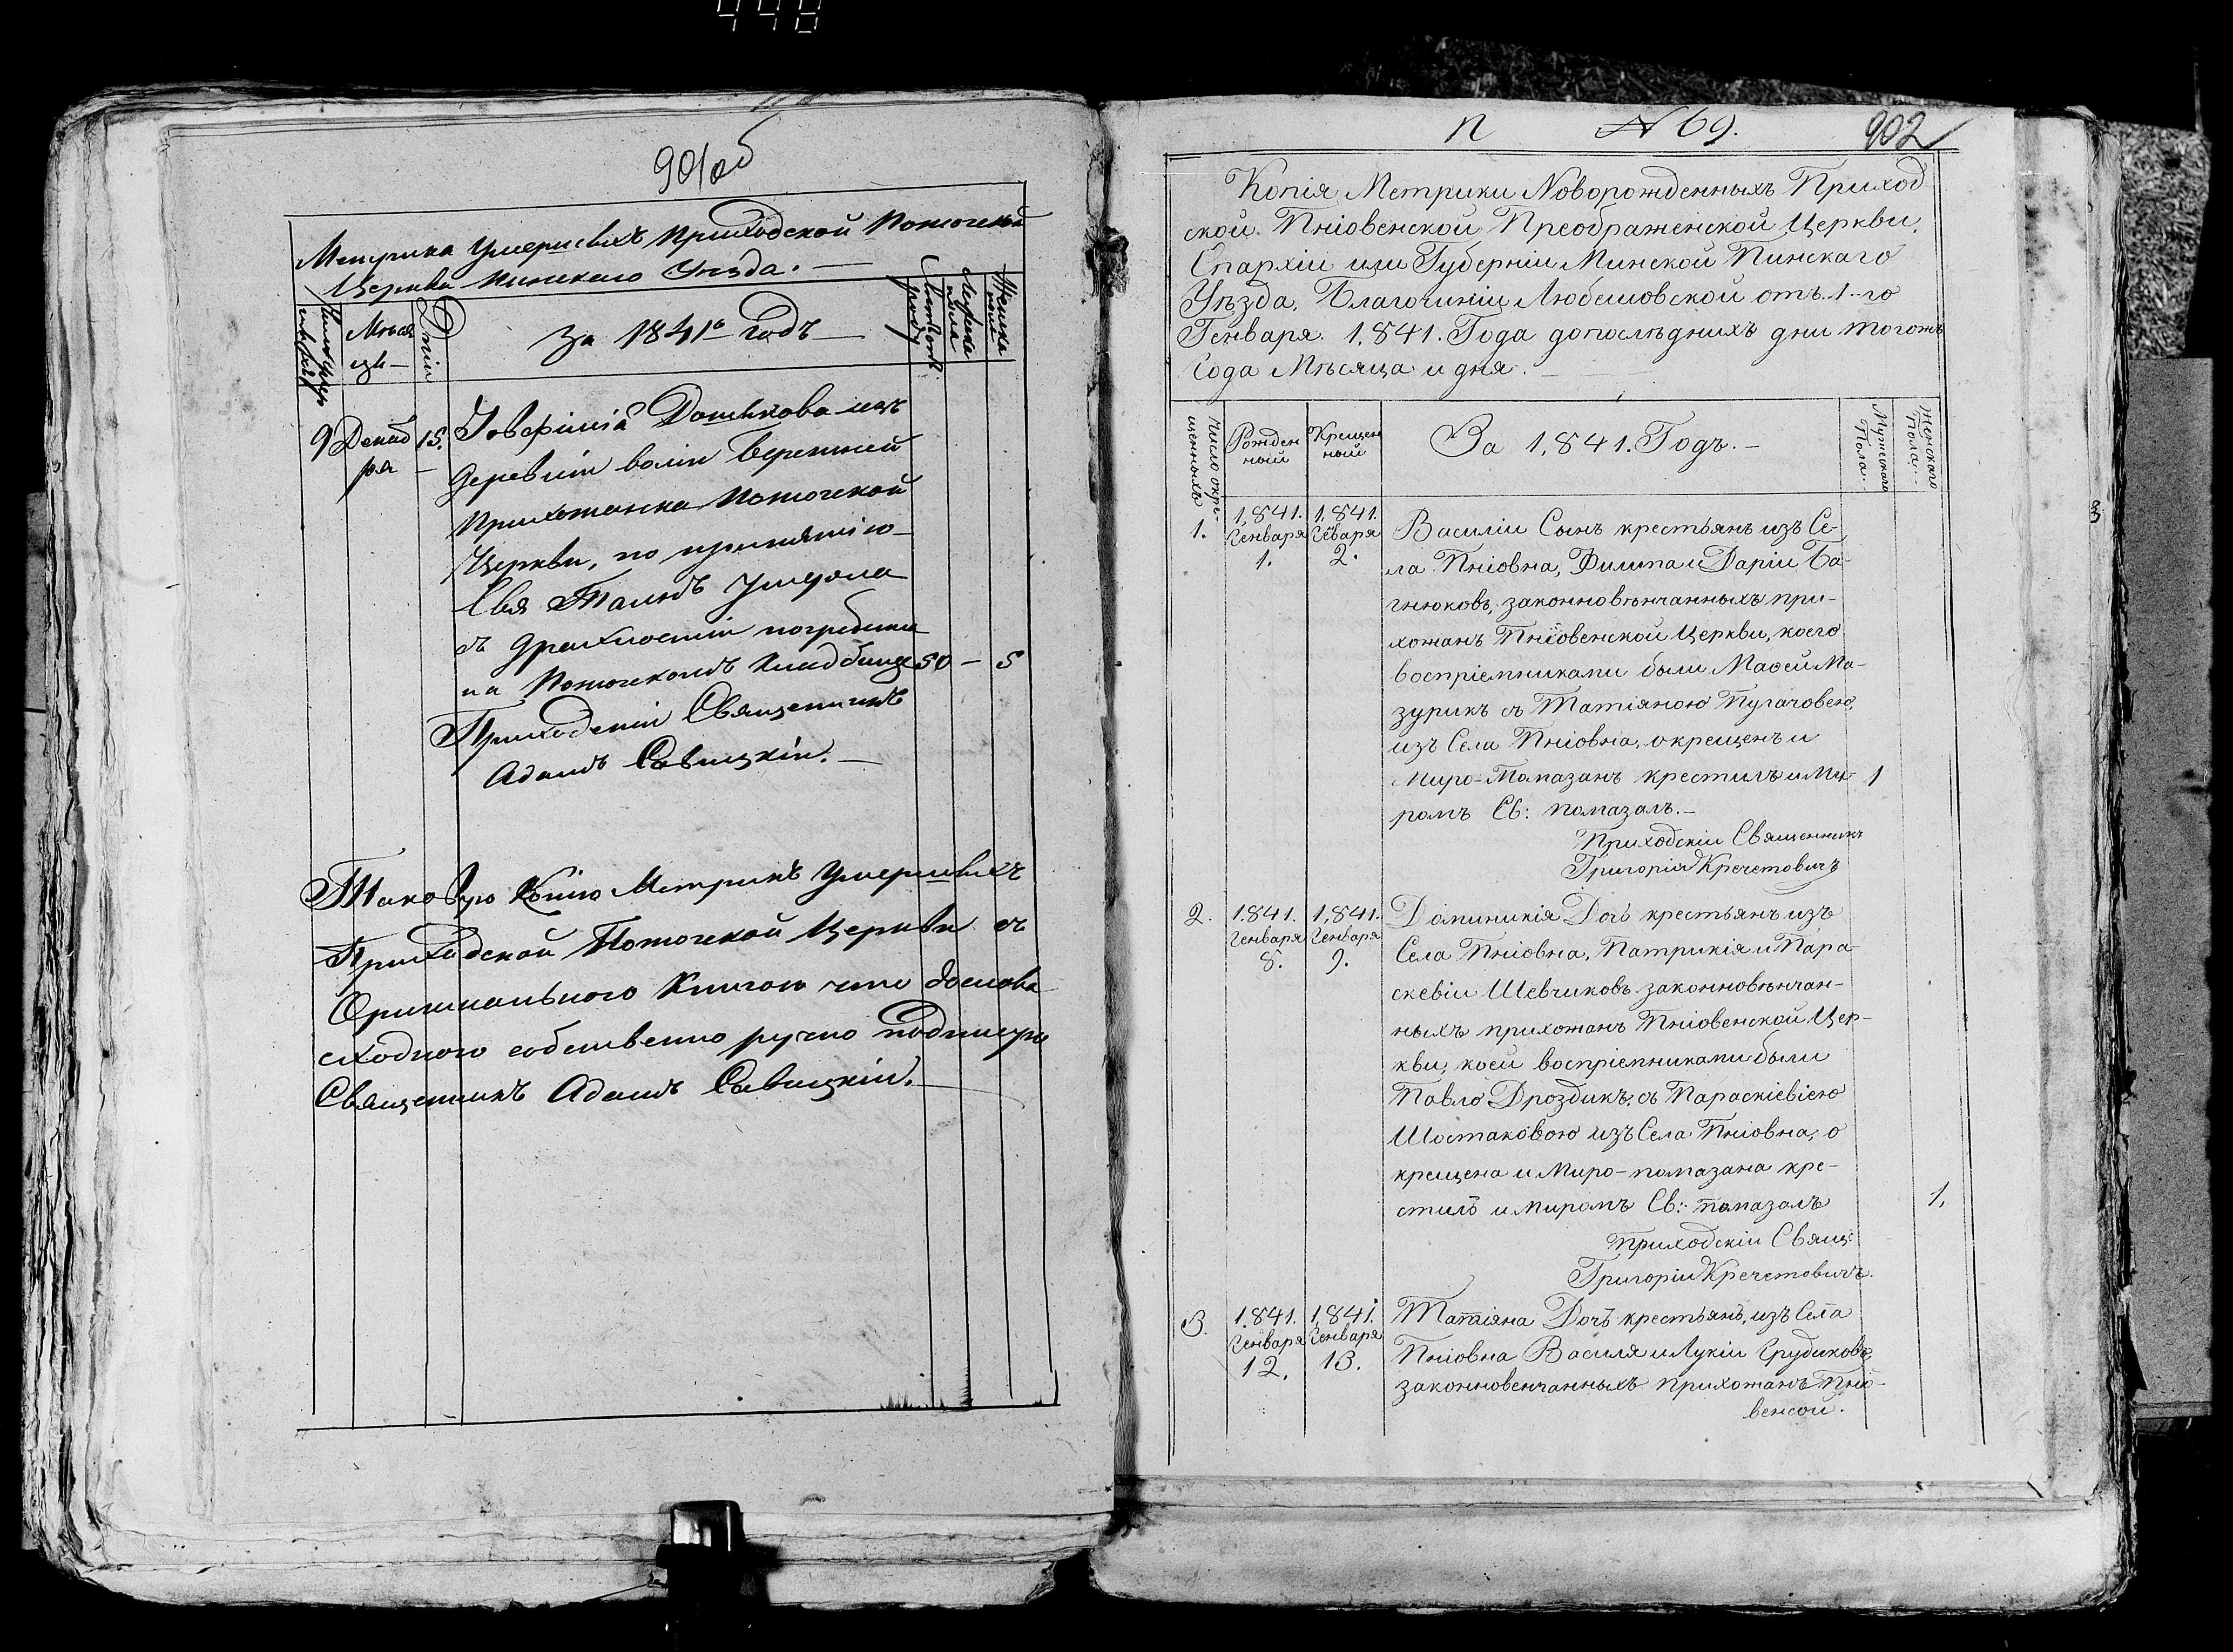 448
901об
Метрика Умершихъ Приходской Потоцской
Церкви Пинскаго Уѣзда. —
Число умершихъ
Мѣся
цъ —
Дни
За 1841й Годъ —
Мужеска
пола
Женска
пола
9
Декаб
ря
15.
—
Деревни воли Бережней
Прихожанка Потоцкой
Церкви, по принятію
Свя Таинъ Умерла
съ драхлости погребена
на Потоцкомъ Кладбище 50 — 5
Приходскій Священникъ
Адамъ Савицкій. —
Таковую Копію Метрикъ Умершихъ
Приходской Потоцкой Церкви съ
Оригинальною Книгою что дословно
сходною собственно ручно подпишу
Священникъ Адамъ Савицкій. —
п N 69. 902
Копія Метрики Новорожденныхъ Приход
ской Пніовенской Преображенской Церкви,
Епархіи или Губерніи Минской Пинскаго
Уѣзда, Благочиніи Любешовской отъ 1-го
Генваря 1,841. Года допослѣднихъ дни тогожъ
Года Мѣсяца и дня. —
Число окре-
щенныхъ
Рожден
ный
Крещен
ный
За 1,841. Годъ. —
Мужескаго
Пола.
Женскаго
Пола.
1.
1,841.
Генваря
1.
1.841.
Генваря
2.
Василій Сынъ крестьянъ изъ Се-
ла Пніовна, Филипа и Даріи Ба-
гнюковъ, законновѣнчанныхъ при-
хожанъ Пніовенской Церкви, коего
воспріемниками были Маѳей Ма-
зурикъ съ Татіяною Пугачовею,
изъ Села Пніовна, окрещенъ и
Миро-Помазанъ крестилъ и Ми- 1
ромъ Св: помазалъ. —
Приходскій Священникъ
Григорій Кречетовичъ
2.
1.841.
Генваря
8.
1,841.
Генваря
9.
Доминикія Дочь крестьянъ изъ
Села Пніовна, Патрикія и Пара-
скевіи Шевчиковъ законновѣнчан-
ныхъ прихожанъ Пніовенской Цер-
кви, коей воспріемниками были
Павло Дроздикъ съ Параскіевіею
Шостаковою изъ Села Пніовна, о
крещена и Миро-помазана кре-
стилъ и миромъ Св: помазалъ 1,
Приходскій Свящ:
Григорій Кречетовичъ.
3.
1.841.
Генваря
12.
1,841.
Генваря
13.
Татіяна Дочъ крестьянъ, изъ Села
Пніовна Василя и Лукіи Грудиковъ,
законновенчанныхъ прихожанъ Пніо-
венсой.